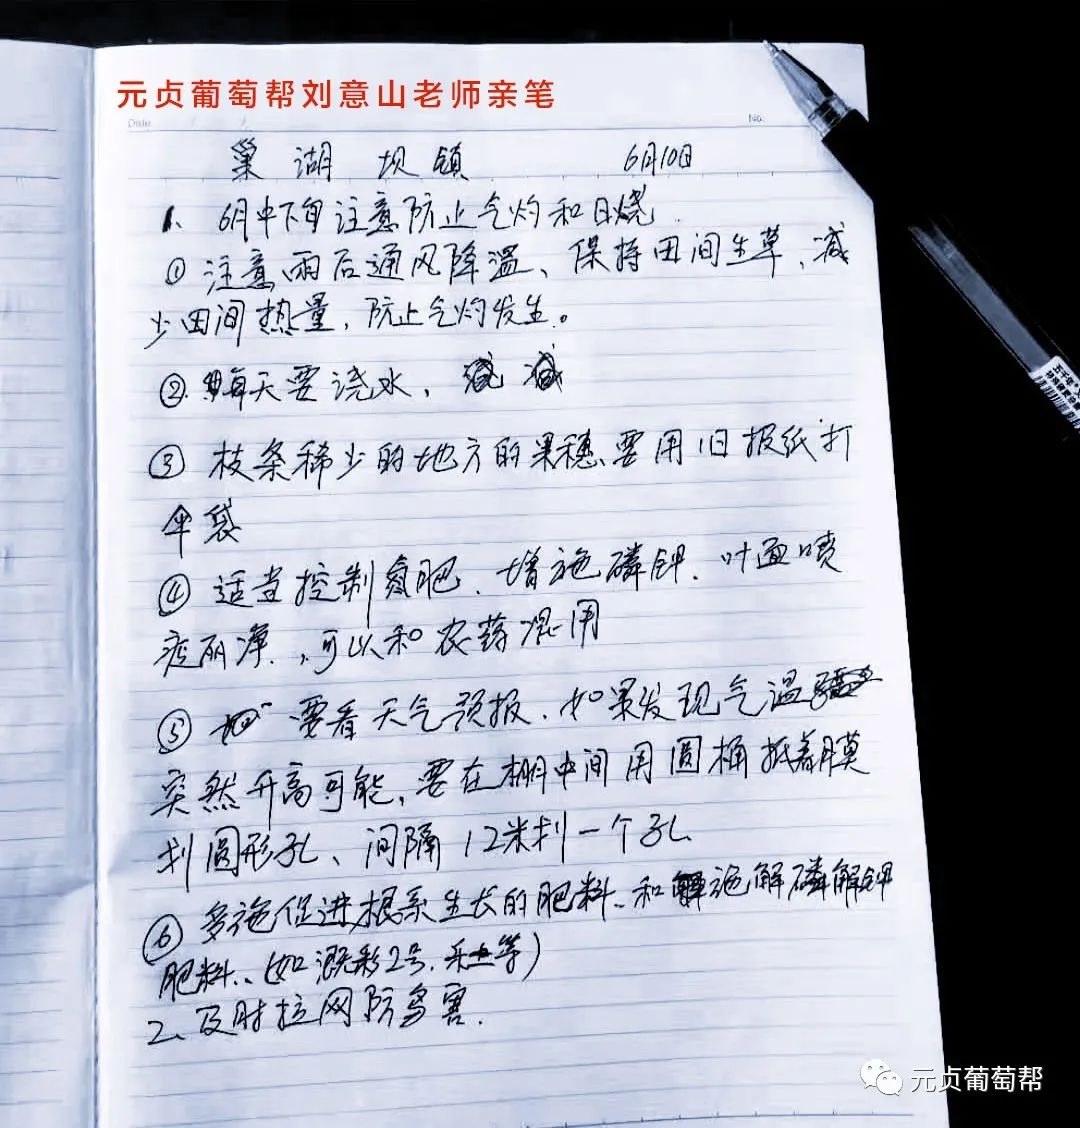 元贞葡萄帮刘意山老师亲笔
Date
No.
巢湖 坝镇 6月10日
1、6月中下旬注意防止气灼和日烧.
① 注意雨后通风降温、保持田间生草、减
少田间热量,防止气灼发生。
② 晴天要浇水,
③ 枝条稀少的地方的果穗要用旧报纸打
伞袋
④ 适当控制氮肥、增施磷钾、叶面喷
丽净、可以和农药混用
⑤ 要看天气预报、如果发现气温
突然升高可能,要在棚中间用圆桶抵着膜
划圆形孔、间隔12米划一个孔
⑥ 多施促进根系生长的肥料、和施解磷解钾
肥料、(如溉彩2号、等)
2、及时拉网防鸟害.
元贞葡萄帮